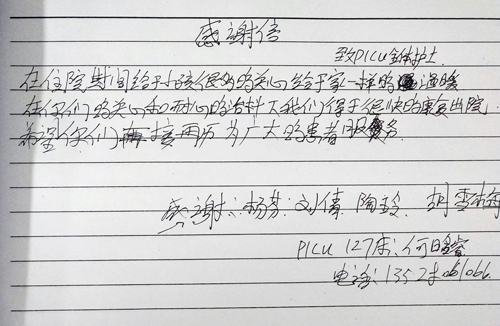 感谢信
致PICU全体护士
在住院期间给予小孩很多的关心给予家一样的温暖
在你们的关心和耐心的治料下我们得于很快的康复出院
希望你们再接再历为广大的患者服务
感谢:杨芬 刘倩 陶 胡雪
PICU 127床:何
电话:1352